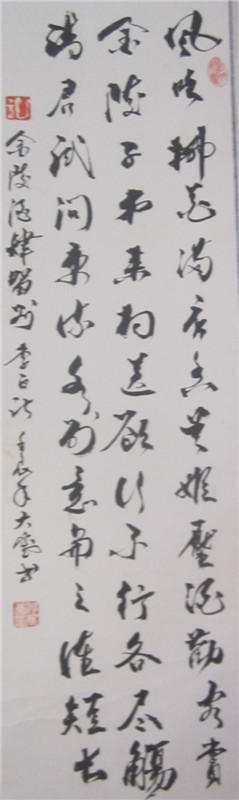 風吹柳花滿店香吳姬壓酒勸客嘗
金陵子弟來相送欲行不行各尽觴
請君試問東流水別意與之誰短長
金陵酒肆留別 李白詩 年大書